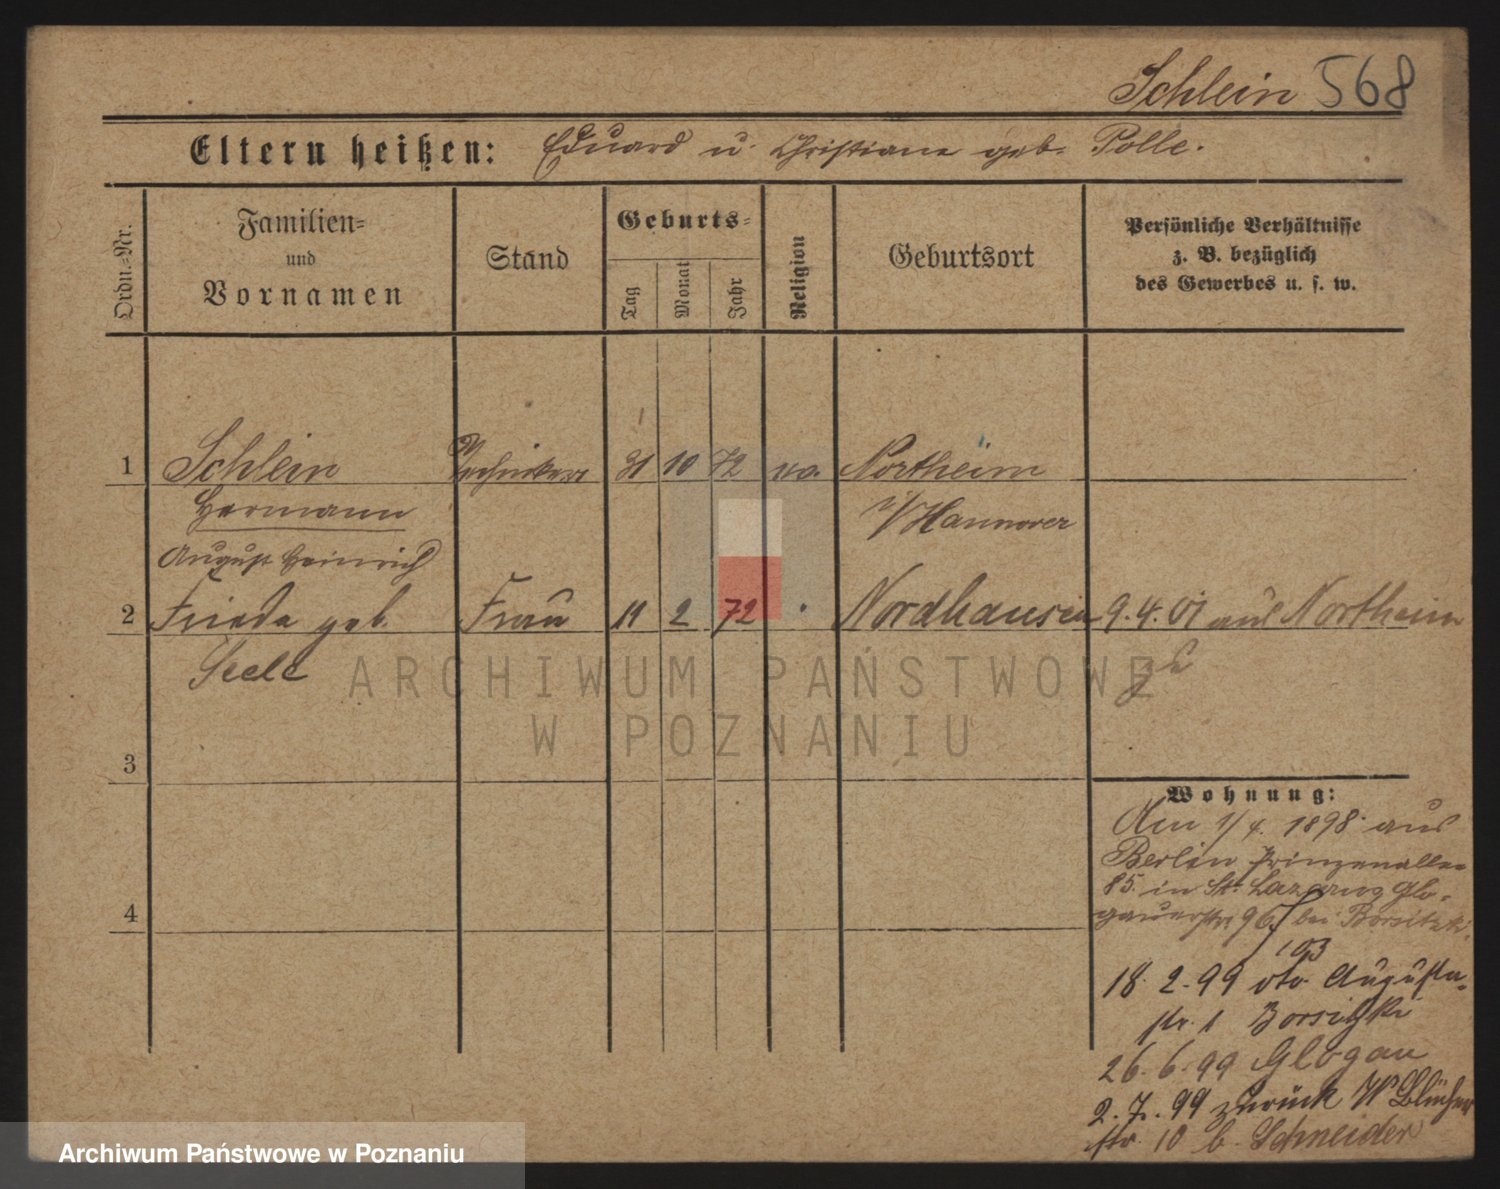 Schlein 568
Eltern heißen: Eduard u. Christiane geb. Polle.
Ordn.-Nr.
Familien-
und
Vornamen
Stand
Geburts-
Tag
Monat
Jahr
Religion
Geburtsort
Persönliche Verhältnisse
z. B. bezüglich
des Gewerbes u. s. w.
1 Schlein Techniker 31 10 72 Northeim
Hermann i/Hannover
August Heinrich
2 Frieda geb. Frau 11 2 72 Nordhausen 9.4.01 aus Northeim
Seele zu
ARCHIWUM PAŃSTWOWE
W POZNANIU
3
Wohnung:
Am 1/4. 1898 aus
Berlin Prinzenallee
85 in St. Lazarus Glo-
4
gauerstr. 96 bei
103
18. 2. 99 Augusta-
str. 1
26. 6. 99 Glogau
2. 7. 99 zurück Blücher
str. 10 b. Schneider
Archiwum Państwowe w Poznaniu